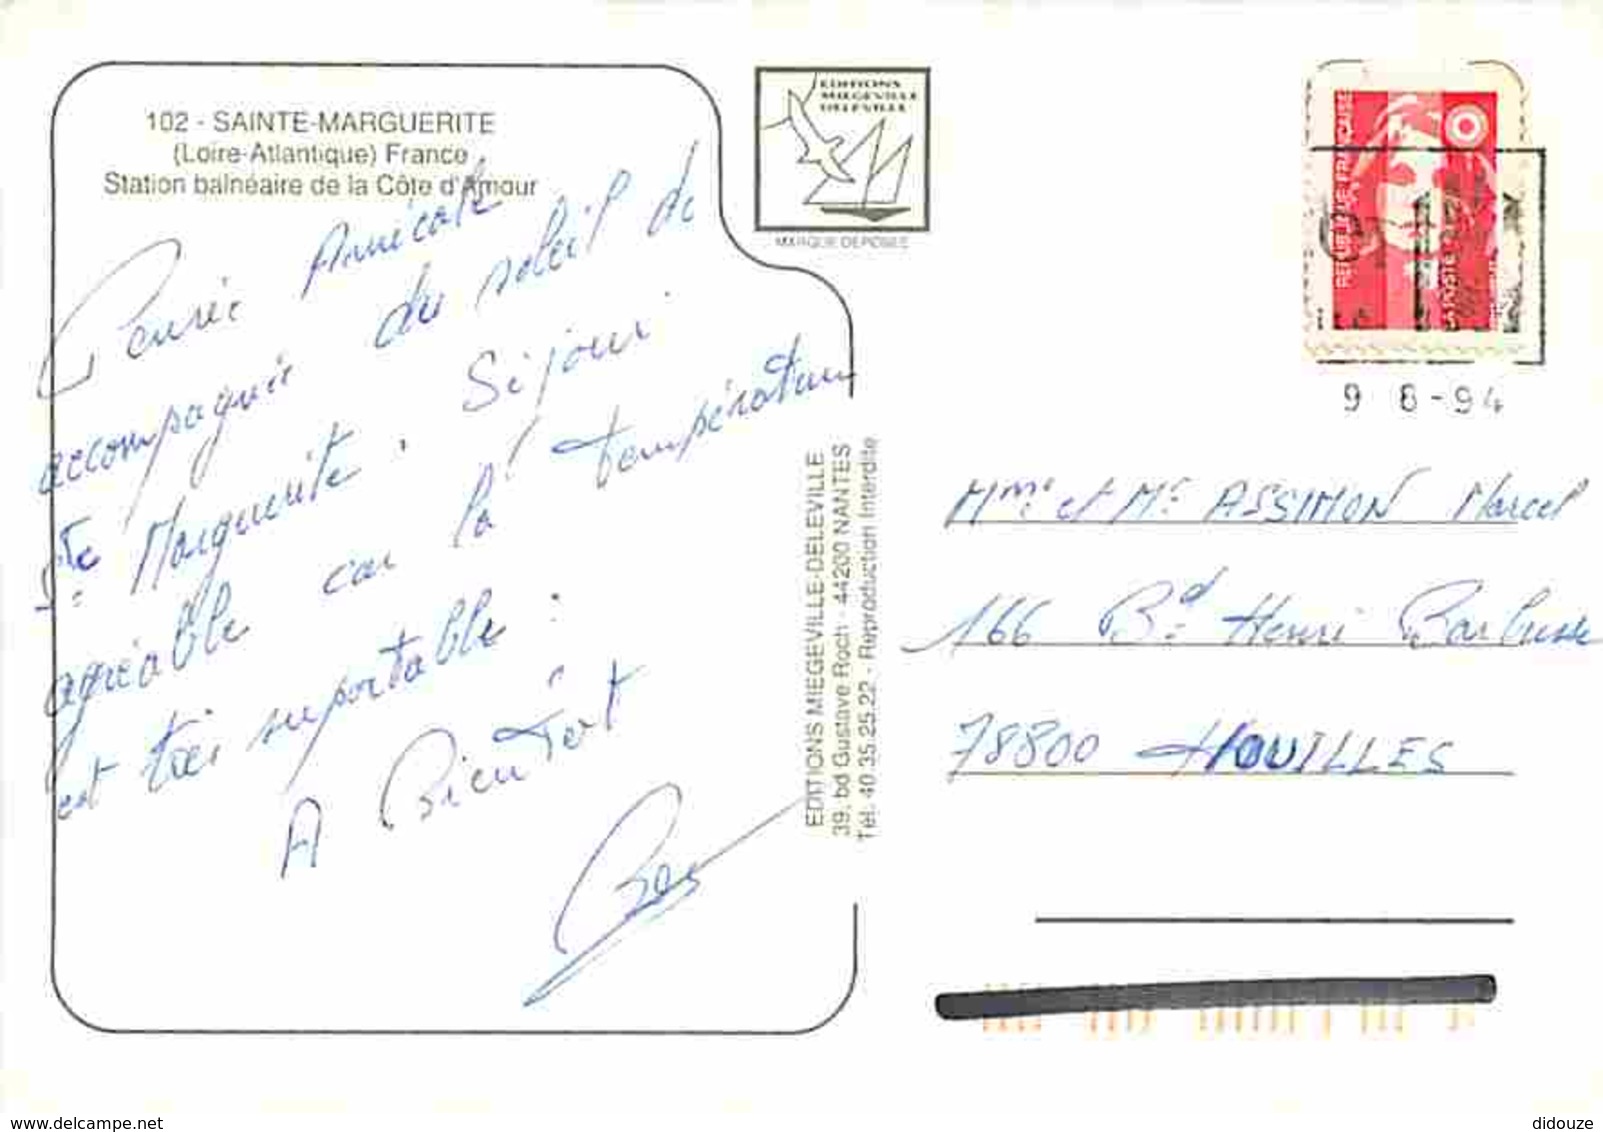 102 - SAINTE-MARGUERITE
(Loire-Atlantique) France
Station balnéaire de la Côte d'Amour
Pensée Amicale
accompagnée du soleil de
Ste Marguerite. Séjour
agréable car la température
est très suportable.
A Bientôt
EDITIONS
MIEGEVILLE
DELEVILLE
MARQUE DEPOSEE
EDITIONS MIEGEVILLE-DELEVILLE
39, bd Gustave Roch - 44200 NANTES
Tél. 40.35.25.22 - Reproduction Interdite
REPUBLIQUE FRANÇAISE
LA POSTE
9 8-94
Mme et Mr ASSIMON Marcel
166 Bd Henri Barbusse
78800 HOUILLES
didouze